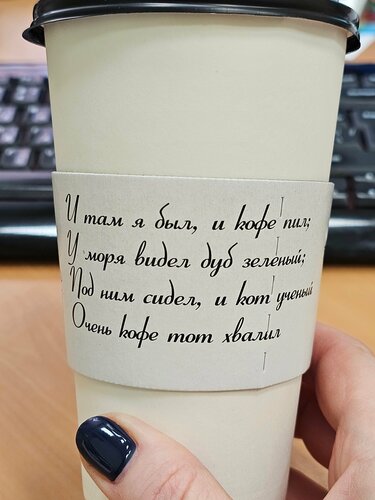 И там я был, и кофе пил;
У моря видел дуб зеленый;
Под ним сидел, и кот ученый
Очень кофе тот хвалил